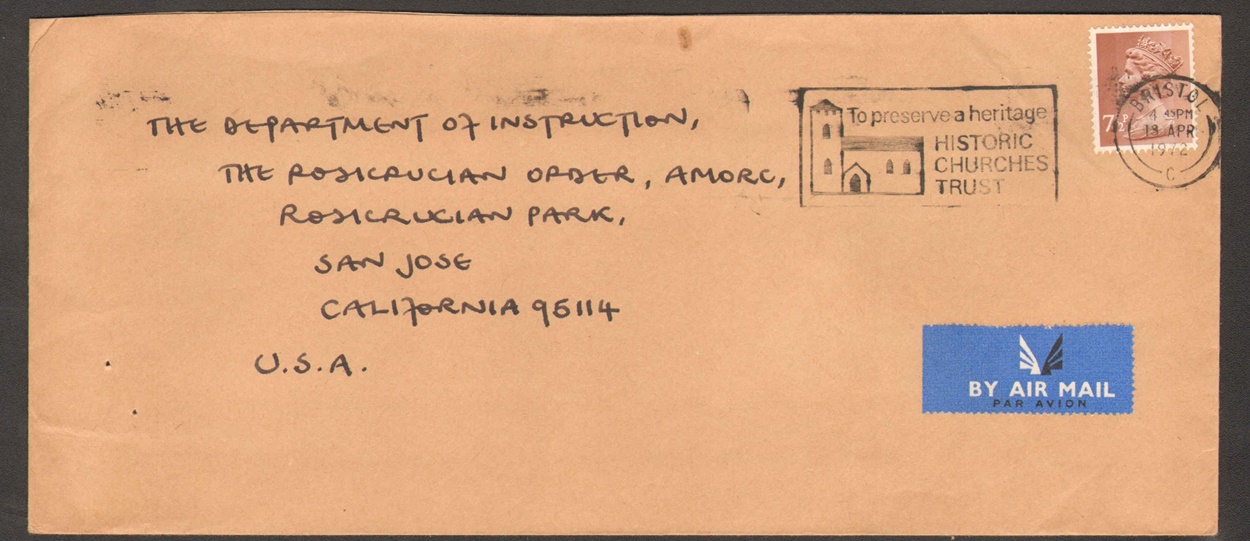 THE DEPARTMENT OF INSTRUCTION,
THE ROSICRUCIAN ORDER, AMORC,
ROSICRUCIAN PARK,
SAN JOSE
CALIFORNIA 95114
U.S.A.
To preserve a heritage
HISTORIC
CHURCHES
TRUST
7½P
BRISTOL
4 45PM
13 APR
1972
C
BY AIR MAIL
PAR AVION